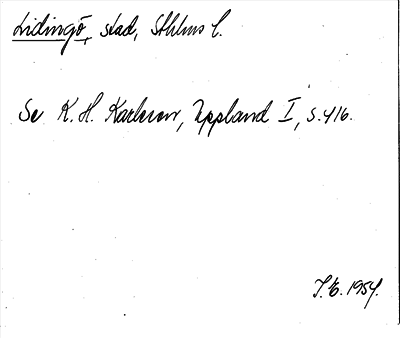 Lidingö, stad, Sthlms l.
Se K. H. Karlsson, Uppland I, s. 416.
J. E. 1954.